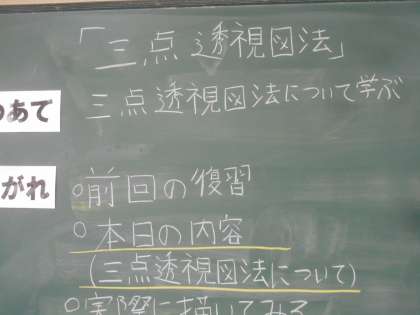 「三点透視図法」
めあて
三点透視図法について学ぶ
がれ
○前回の復習
○本日の内容
(三点透視図法について)
○実際に描いてみる